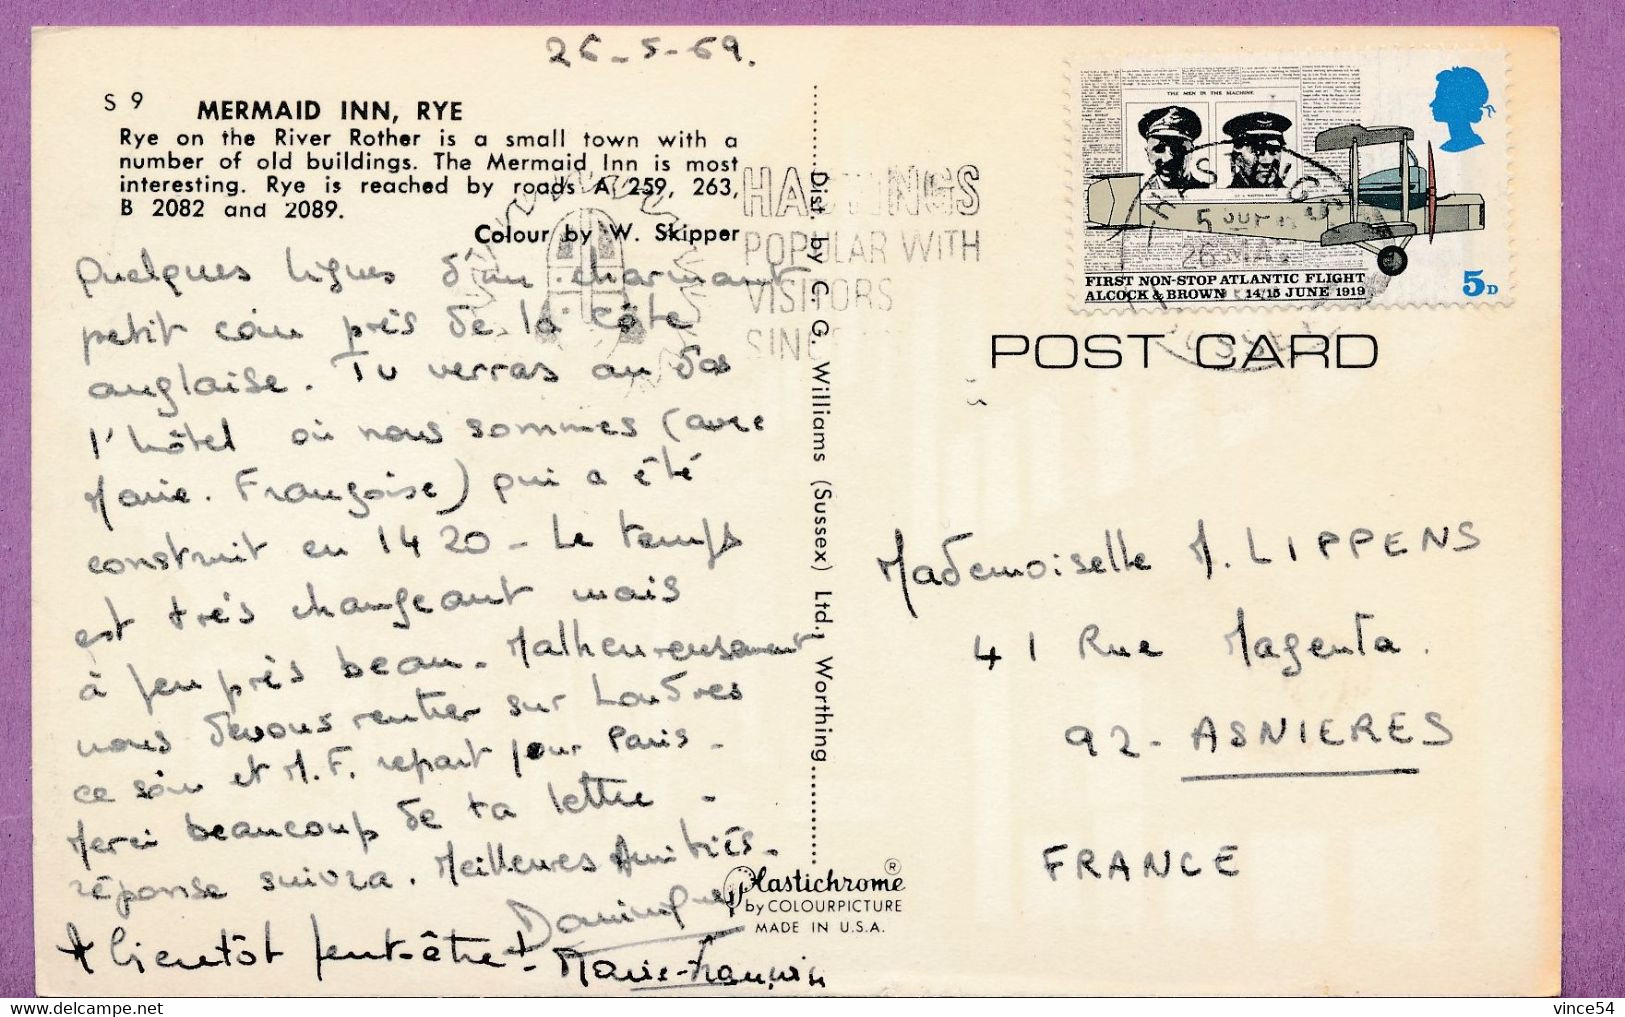 26-5-69.
S 9
MERMAID INN, RYE
Rye on the River Rother is a small town with a
number of old buildings. The Mermaid Inn is most
interesting. Rye is reached by roads A 259, 263,
B 2082 and 2089.
Colour by W. Skipper
Quelques lignes d'un charmant
petit coin près de la côte
anglaise. Tu verras au dos
l'hôtel où nous sommes (avec
Marie. Françoise) qui a été
construit en 1420 - Le temps
est très changeant mais
à peu près beau. Malheureusement
nous devons rentrer sur Londres
ce soir et M.F. repart pour Paris.
Merci beaucoup de ta lettre.
réponse suivra. Meilleures Amitiés.
Dominique
A bientôt peut-être!
Marie-Françoise
HASTINGS
POPULAR WITH
VISITORS
SINCE
Dist. by C. G. Williams (Sussex) Ltd., Worthing
Plastichrome ®
by COLOURPICTURE
MADE IN U.S.A.
THE MEN IN THE MACHINE
FIRST NON-STOP ATLANTIC FLIGHT
ALCOCK & BROWN 14/15 JUNE 1919
5D
HASTINGS
26 MAY
POST CARD
Mademoiselle M. LIPPENS
41 Rue Magenta.
92 - ASNIERES
FRANCE
Delcampe.net
vince54